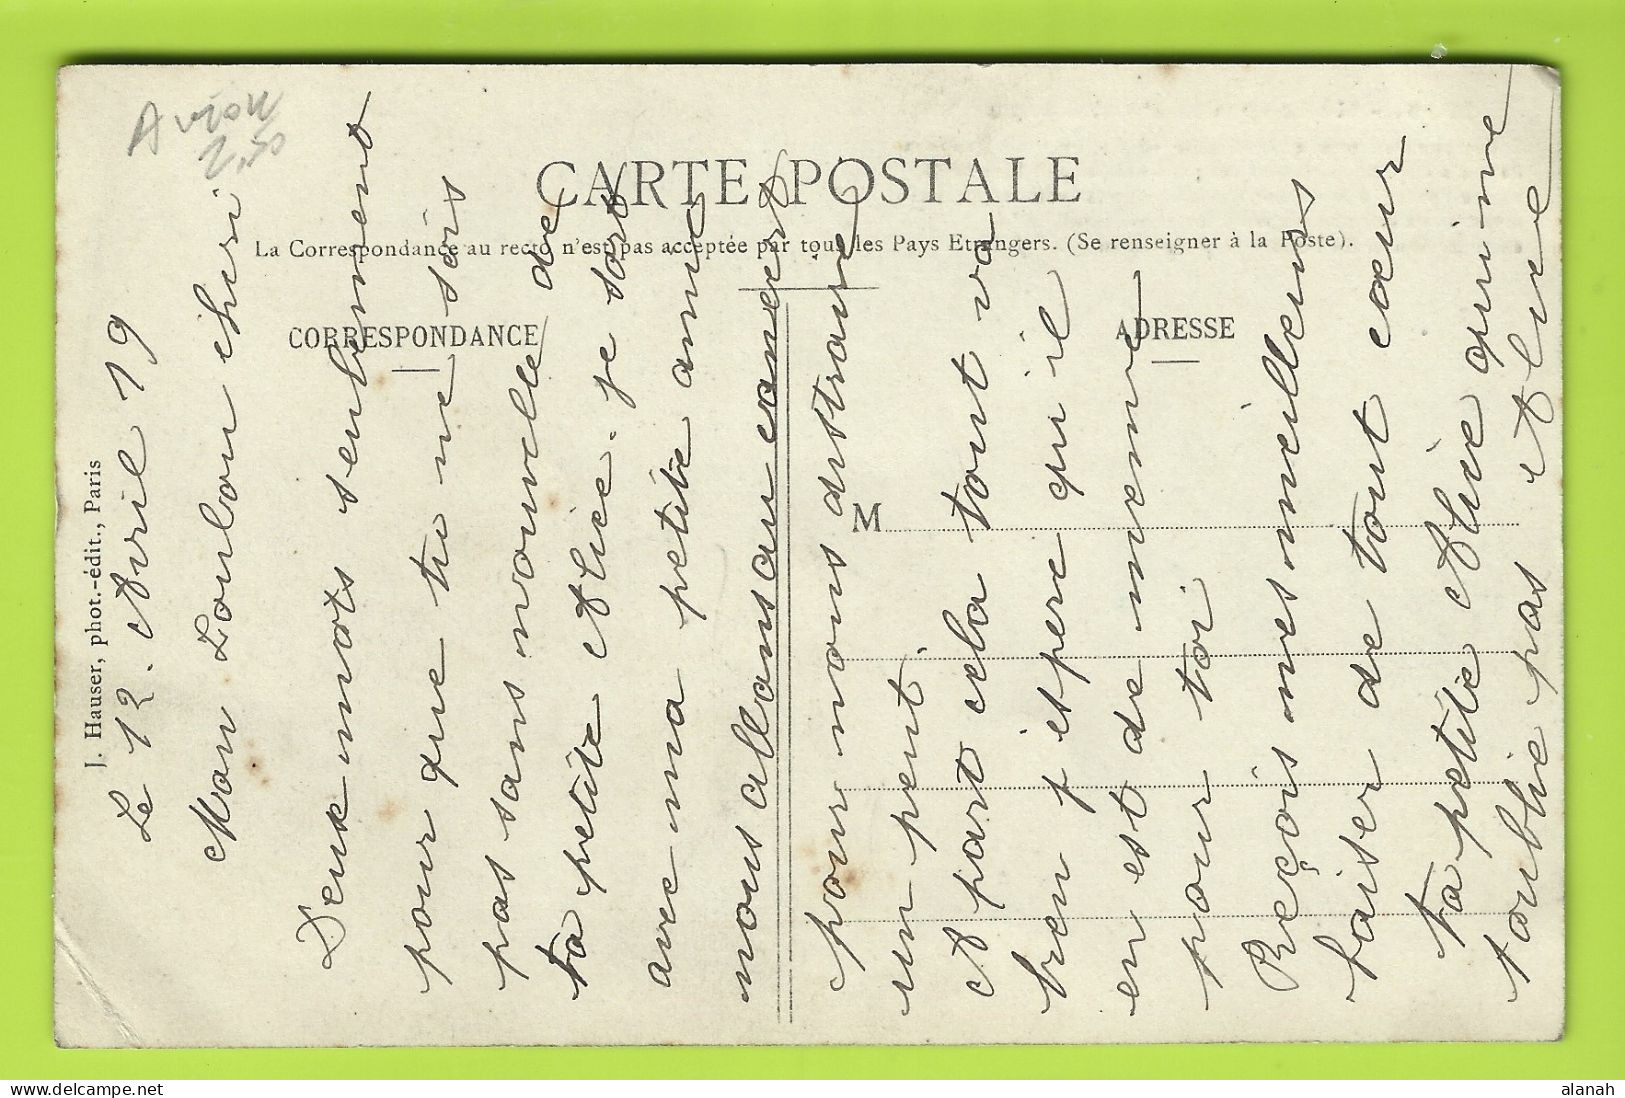 Avion
2,50
CARTE POSTALE
La Correspondance au recto n'est pas acceptée par tous les Pays Etrangers. (Se renseigner à la Poste).
CORRESPONDANCE
ADRESSE
M
J. Hauser, phot.-édit., Paris
Le 12. Avril 19
Mon Loulou cheri
Deux mots seulement
pour que tu ne sois
pas sans nouvelle de
ta petite Alice. je sort
avec ma petite amie
nous allons au concert
pour nous distraire
un peut.
A part cela tout va
bien j'espere qu'il
en est de meme
pour toi.
Reçois mes meilleurs
baiser de tout cœur
ta petite Alice qui ne
t'oublie pas Alice
alanah